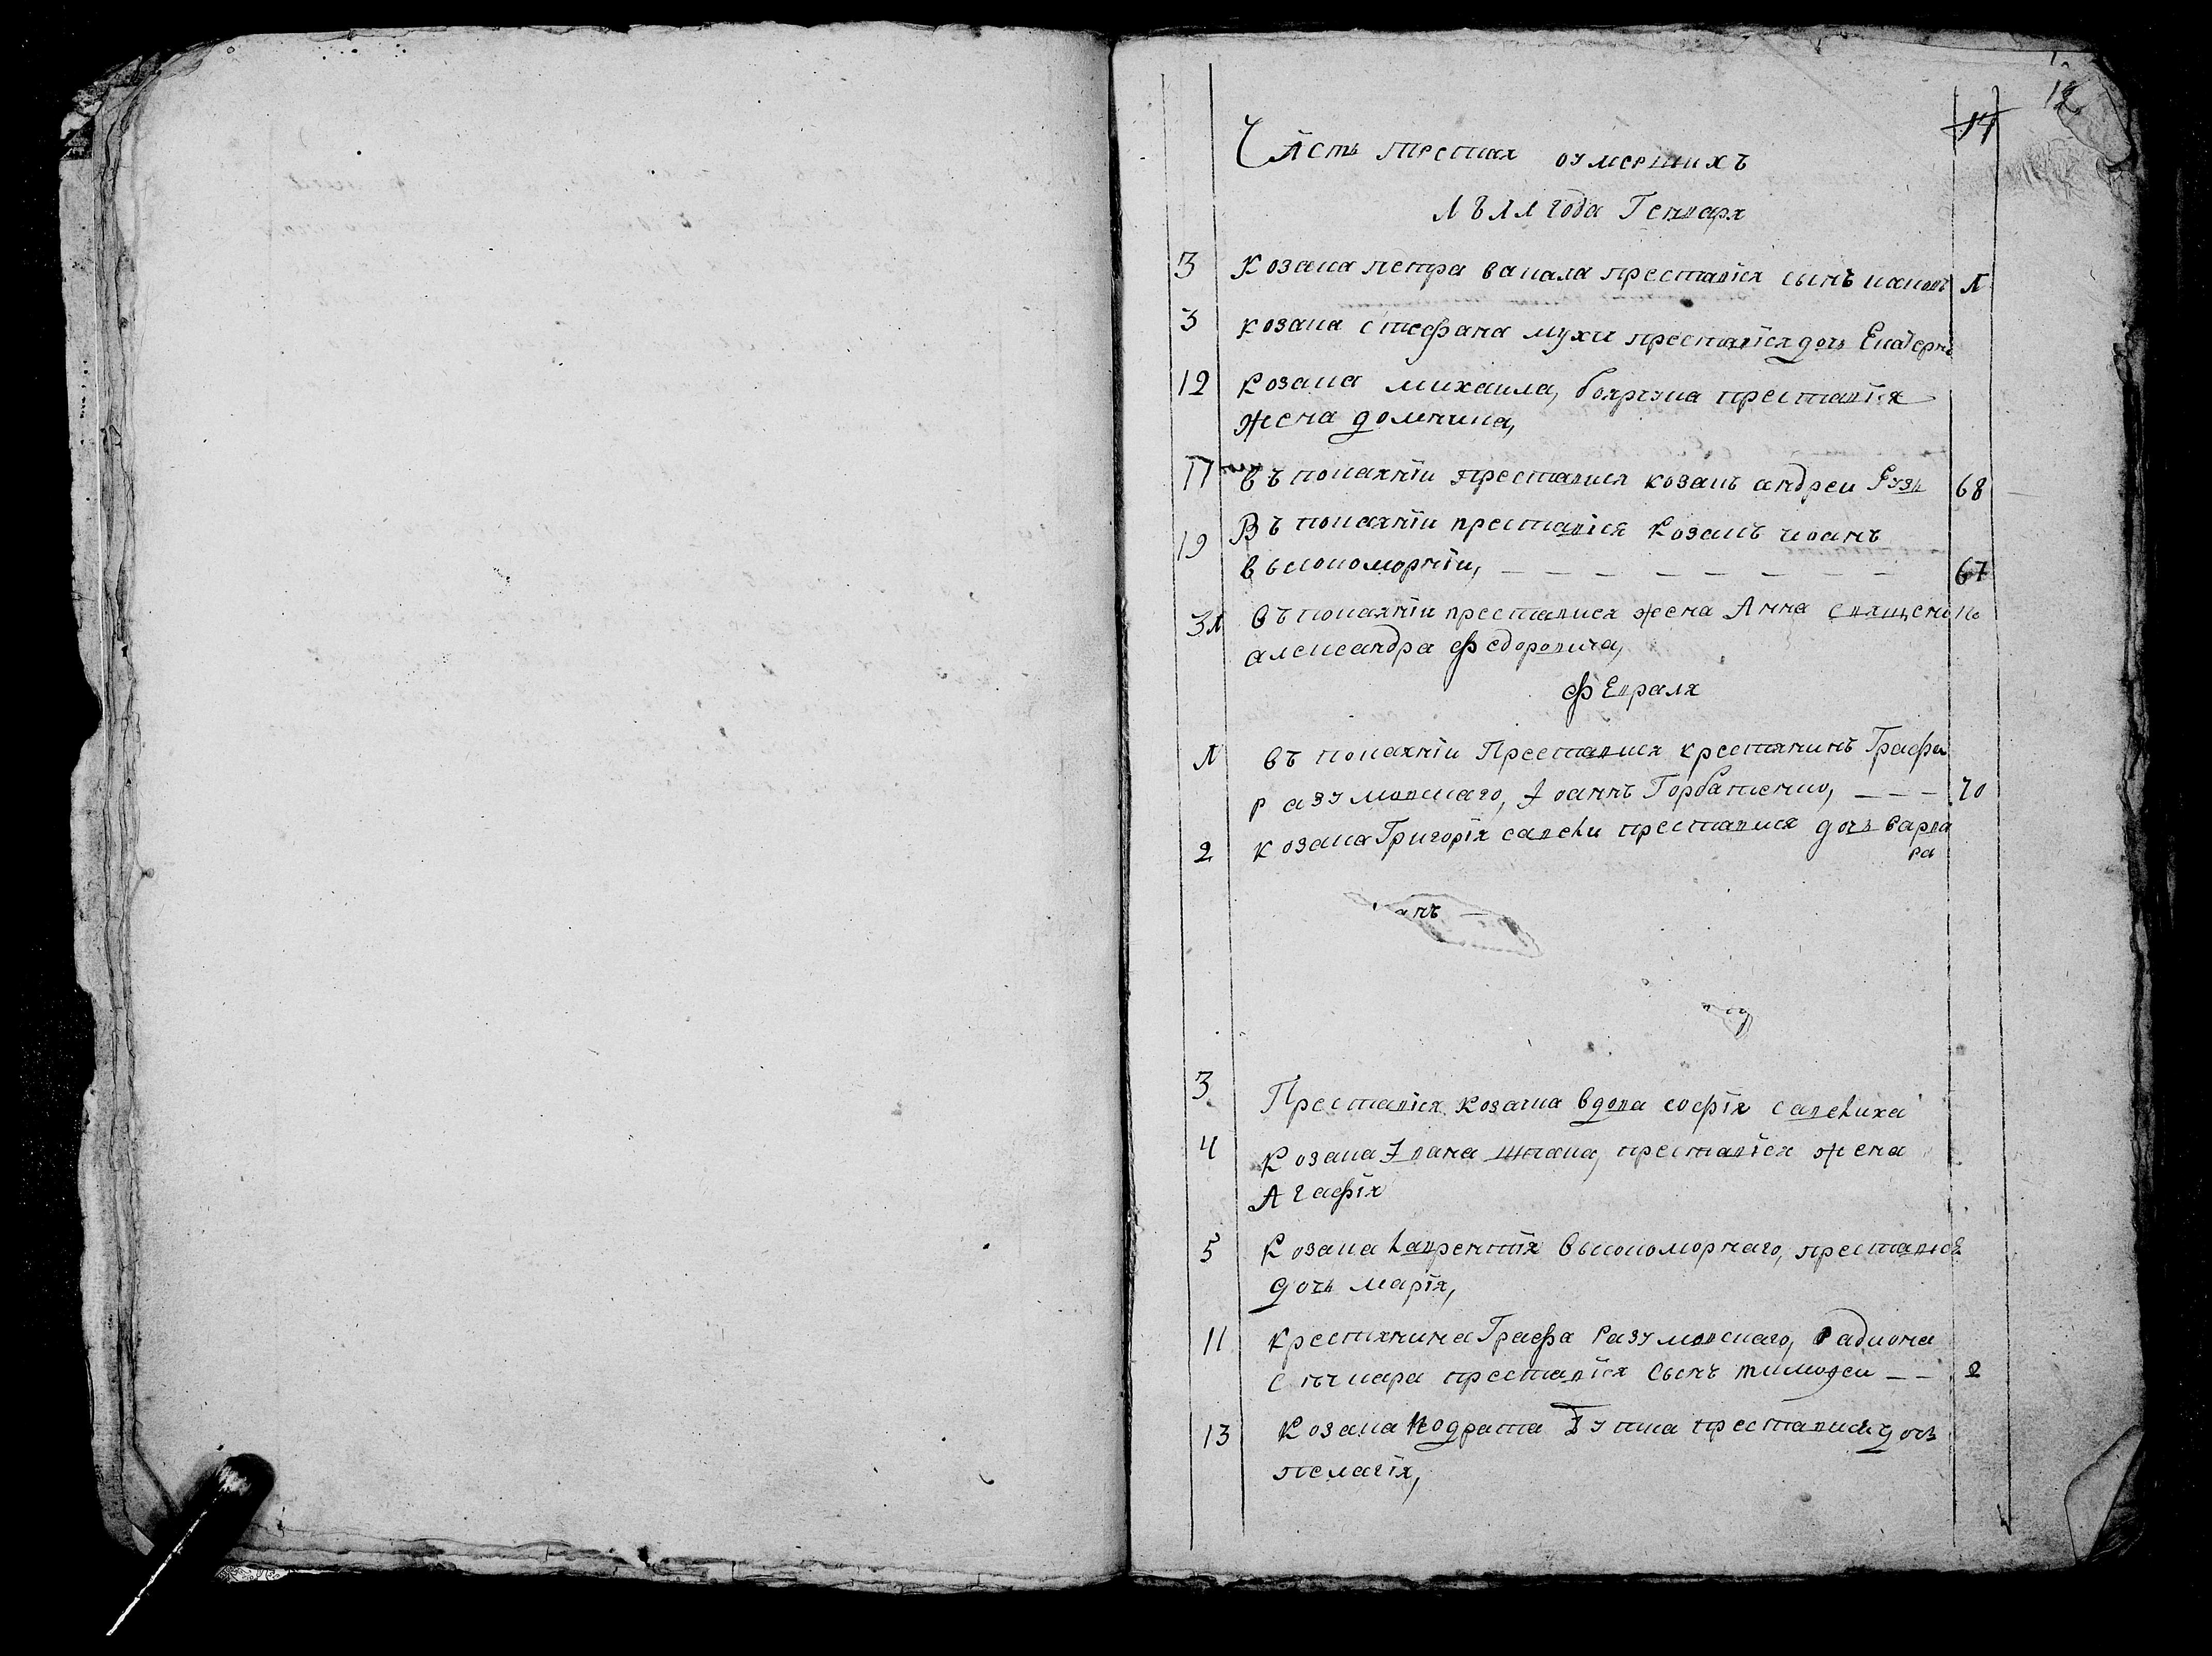 12
14
Часть третая оумершихъ
года Генваря
3 Козака петра вакала преставися сынъ иаковъ
3 козака стефана мухи преставїся дочь Екатерина
12 козака михаила, преставїся
жена домникиа,
17 въ покаянїи преставися козакъ андреи 68
19 Въ покаянїи преставїся козакъ иоанъ
высокоморнїи, — — — — — — — — 67
31 въ покаянїи преставися жена Анна священика
александра федоровича,
февраля
1 въ покаянїи Преставися крестянинъ Графа
разумовскаго, Іоаннъ Горбатенко, — — — 70
2 козака Григорїя преставися дочь варва
ра
анъ
3 Преставїся козачка вдова софїя
4 Козака Івана шпака, преставїся жена
Агафїя
5 Козака Лаврентїя высокоморнаго, преставися
дочь марїя,
11 крестянина Графа разумовскаго, радиона
преставїся сынъ тимоѳеи — — 2
13 Козака преставися дочь
пелагїя,